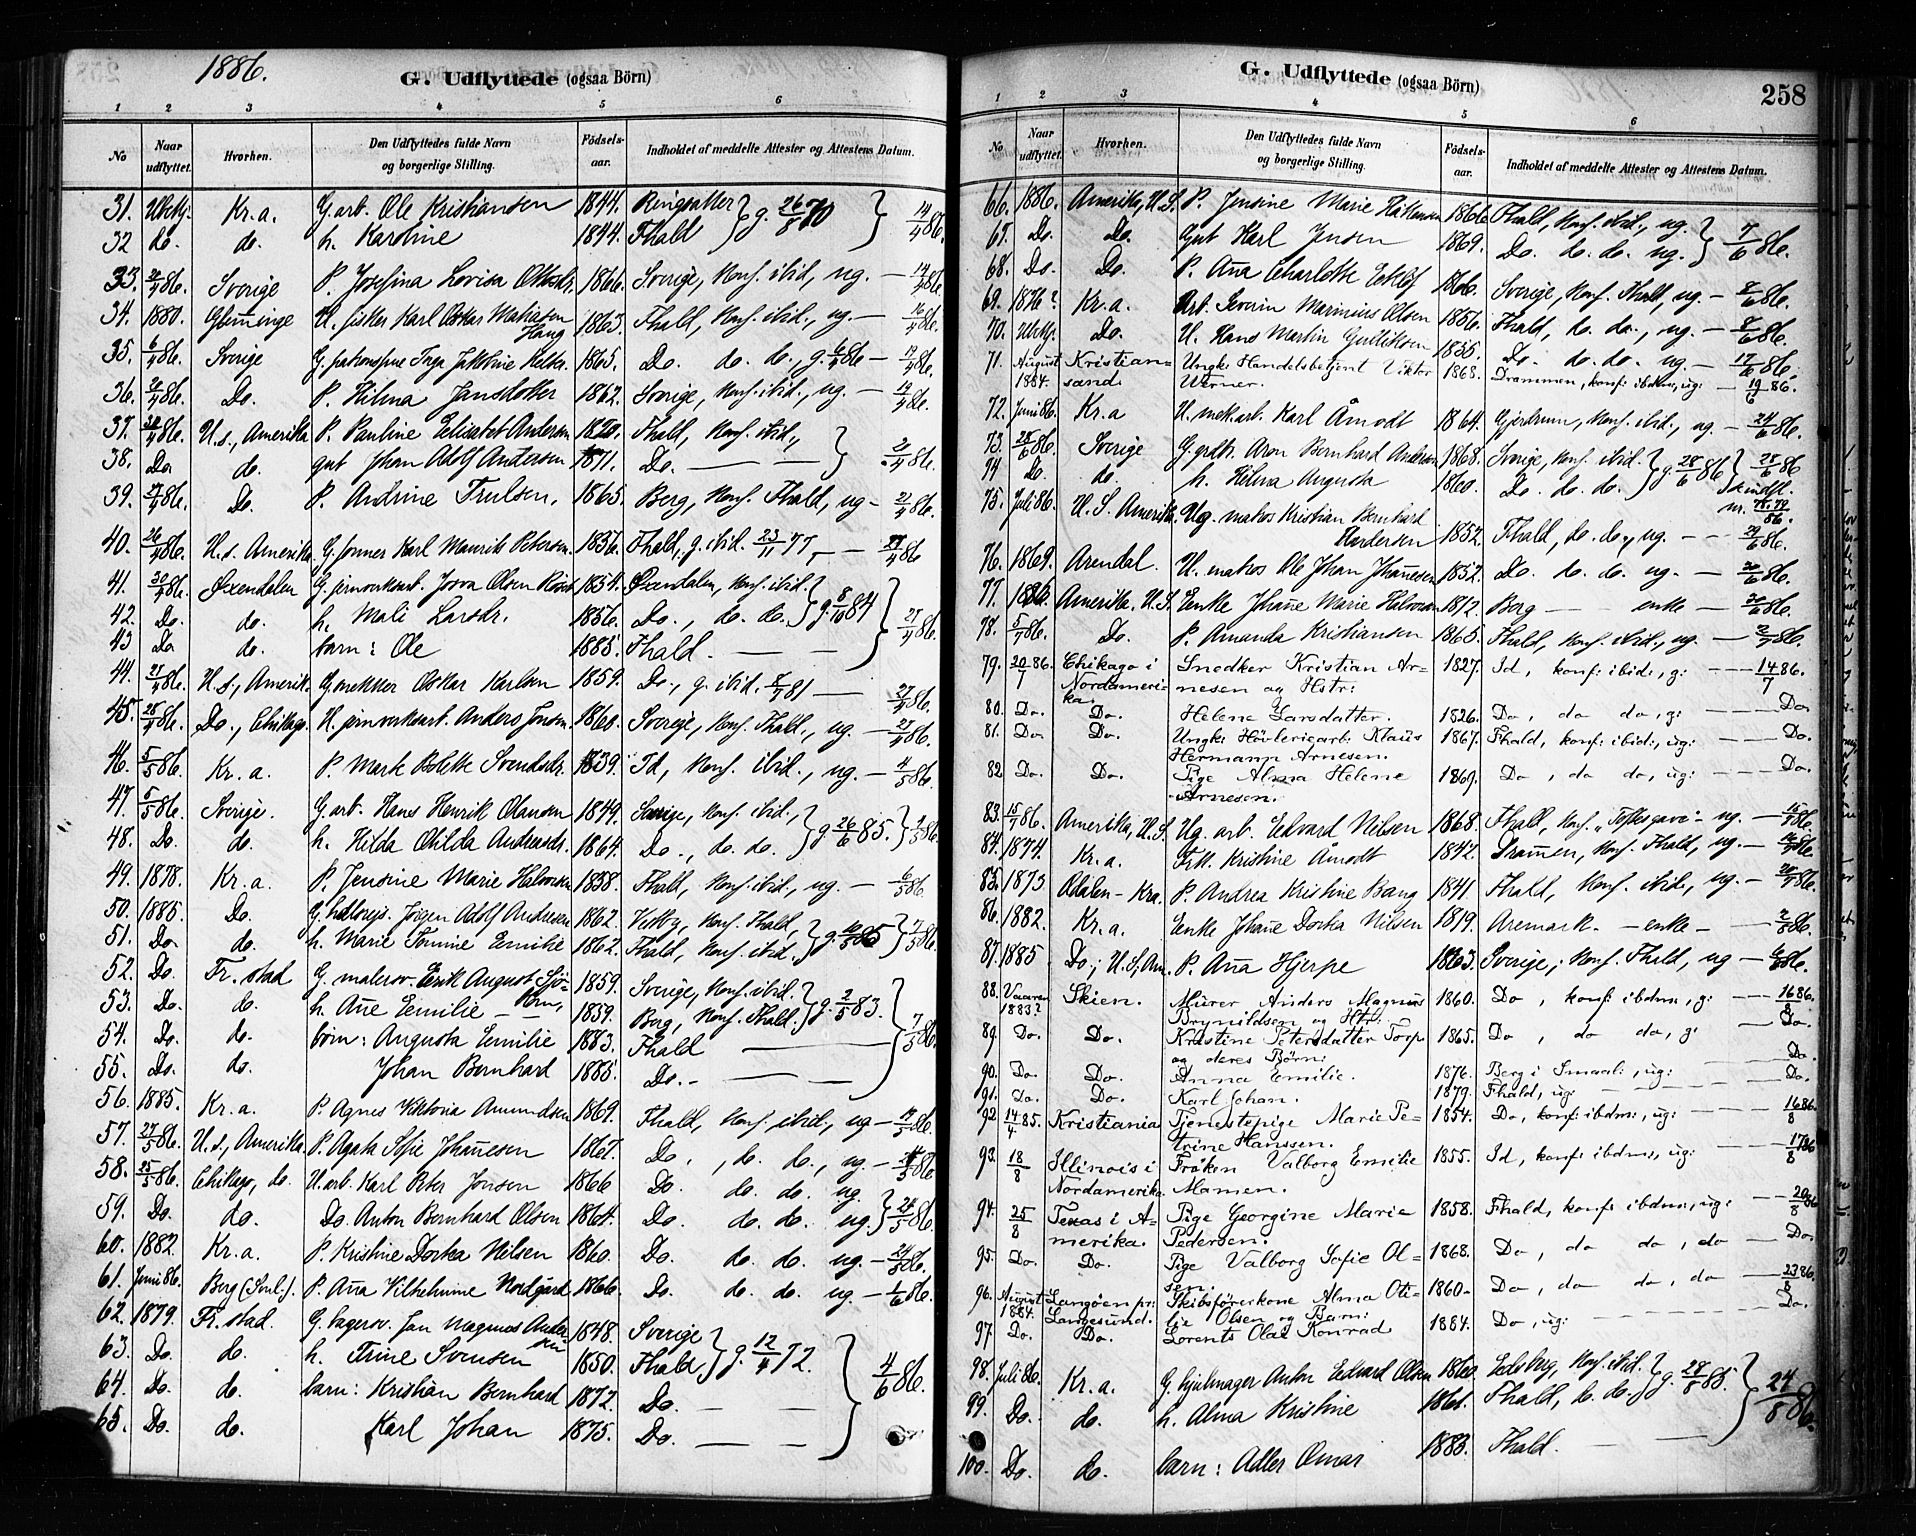 1886.
G. Udflyttede (ogsaa Börn)
1 2 3 4 5 6
No Naar udflyttet. Hvorhen. Den Udflyttedes fulde Navn og borgerlige Stilling. Födsels-aar. Indholdet af meddelte Attester og Attestens Datum.
31. Kr.a. G. arb. Ole Kristiansen 1844. g. 26/8 70 14/4 86.
32 do. do. h. Karoline 1844. Fhald
33. Sverige P. Josefina Lovisa 1866. Sverige, konf. ibid., ug. – 14/4 86.
34. 1880. Glemminge U. fisker Karl Oskar 1863. Fhald, konf. ibid., ug. – 16/4 86.
Haug
35. 6/4 86. Sverige 1865. Do. do. do., g. 6/4 86 –
36. Do. P. Hilma Jansdotter 1862. Sverige, konf. ibid., ug. –
37. U.S., Amerika P. Pauline Elisabet Andersen Fhald, konf. ibid.,
38. Do. do. gut Johan Adolf Andersen 1871. Do. — — 21/4 86.
39. Do. P. Andrine Trulsen. 1865. Berg, konf. Fhald, ug – 21/4 86.
40. 26/4 86. U.S. Amerika G. former Karl Maurits Petersen 1856. Fhald, g. ibid. 23/11 77, –
41. 30/4 86. Øxendalen 1854. Øxendalen, konf. ibid. g. 8/10 84 27/4 86.
42. Do. do. h. Mali Larsdr. 1856. Do., do. do.
43 Do do. barn: Ole 1885. Fhald. — —
44. U.S., Amerik. Oskar Karlsen 1859. Do., g. ibid. 27/4 86.
45. 28/4 86. Do., Chikago. U. jernverksarb. Anders Jonsen 1860. Sverige, konf. Fhald., ug. – 27/4 86.
46. 5/5 86. Kr.a. P. Mart. Bolette Svendsdr. 1839. Id, konf. ibid., ug. – 4/5 86.
47. 5/5 86. Sverige. G. arb. Hans Henrik Olausen 1849. Sverige, konf. ibid., g. 26/6 85.
48. Do. do. h. Hilda Otilda Andreasdr. 1864. Do., do. do.
49. 1878. Kr.a. P. Jensine Marie Halvorsen 1858. Fhald, konf. ibid, ug. – 6/5 86
50. 1885. Do. Jørgen Adolf Andersen 1862. konf. Fhald, 7/5 86.
51. Do. do. h. Marie Tomine Emilie 1862. Fhald, konf. ibid.
52. Do. Fr.stad G. malersv. Erik August Sjö- 1859. Sverige, konf. ibid. g. 2/5 83. 7/5 86.
53. Do. do. h. Ane Emilie — 1859. Berg, konf. Fhald.
54. Do. do. börn: Augusta Emilie 1883. Fhald
55. Do. do. Johan Bernhard 1885. Do. — —
56. 1885. Kr.a. P. Agnes Viktoria Amundsen 1869. Fhald, konf. ibid., ug –
57. 27/5 86. U.S., Amerika. P. Agata Sofie Johanesen 1867. Do., do. do., ug. –
58. 25/5 86. Chikago, do. U. arb. Karl Peter Jonsen 1866 Do. do. do. ug.
59. Do. do. Do. Anton Bernhard Olsen 1864. Do. do. do. ug
60. 1882. Kr.a. P. Kristine Dorka Nilsen 1860. Do. do. do. ug. – 24/5 86.
61. Juni 86. Berg (Sml.). P. Ana Vilhelmine Nordgård 1866. Do. do. do. ug – 1/6 86.
62. 1879. Fr.stad. G. bagersv. Jan Magnus Ander- 1848. Sverige g. 12/4 72. 4/6 86.
63. Do. do. h. Trine Svensen 1850. Fhald
64. Do. do. barn: Kristian Bernhard 1872. Do. — —
65. Do. do. Karl Johan 1875. Do. — —
G. Udflyttede (ogsaa Börn)
258
1 2 3 4 5 6
No Naar udflyttet. Hvorhen. Den Udflyttedes fulde Navn og borgerlige Stilling. Födsels-aar. Indholdet af meddelte Attester og Attestens Datum.
66. 1886. Amerika, U.S. P. Jensine Marie Håkensen 1866. Fhald, konf. ibid., ug. 7/6 86.
67. Do. Do. Gut Karl Jensen 1869. Do. do. do. ug.
68. Do. Do. P. Ana Charlotte Eklöf 1866. Sverige, konf. Fhald, ug – 8/6 86.
69. 1876? Kr.a. Arb. Severin Marinius Olsen 1856. Fhald, do. do., ug. – 8/6 86.
70. Do. U. Hans Martin Gulliksen 1855. Do. do. do. ug. – 17/6 86.
71. August 1884. Kristian- Ungk: Handelsbetjent Viktor 1868. Drammen, konf: ibdm, ug: – 19/6 86.
sand. Werner.
72. Juni 86. Kr.a U. mek.arb. Karl Åmodt 1864. Gjerdrum, konf. ibid., ug – 24/6 86.
73. 28/6 86. Sverige Aron Bernhard 1868. Sverige, konf. ibid. g. 28/6 86 28/6 86
74 Do. do. h. Hilma Augusta 1860. Do. do. do.
75. Juli 86. U.S. Amerika. Ug. matros Kristian Bernhard
Andersen 1852. Fhald, do. do., ug. – – 29/6 86.
76. 1869. Arendal. U. matros Ole Johan Johanesen 1852. Do. do. do. ug. – 30/6 86.
77. 1886. Amerika, U.S. Enke Johane Marie Halvorsen 1812. Borg — enke – 30/6 86.
78. 5/7 86. Do. P. Amanda Kristiansen 1865. Fhald, konf. ibid., ug. – 2/7 86.
79. 20/7 86. Chikago i Snedker Kristian Ar- 1827. Id, konf: ibid:, g: – – 14/7 86.
Nordameri- nesen og Hstr:
ka.
80. Do. Do. Helene Larsdatter. 1826. Do, do do, g: – – Do.
81. Do. Do. Ungk: Hövleriearb: Klaus 1867. Fhald, konf: ibid:, ug: – – Do.
Hermann Arnesen.
82 Do. Do. Pige Alma Helene 1869. Do, do do, ug: – – Do.
Arnesen.
83. 15/7 86. Amerika, U.S. Ug. arb. Edvard Nilsen 1868. Fhald, konf. „Toftesgave” ug. – 15/7 86.
84. 1874. Kr.a. Frk. Kristine Åmodt 1842. Dramen, konf. Fhald, ug. –
85. 1873 Ådalen – Kra. P. Andrea Kristine Bang 1841. Fhald, konf. ibid., ug –
86. 1882. Kr.a. Enke Johane Dorka Nilsen 1819. Aremark. – enke – 2/8 86.
87. 1885 Do.; U.S., Am. P. Ana Hjerpe 1863. Sverige, konf. Fhald, ug –
88. Vaaren 1883? Skien. Murer Anders Magnus 1860. Do, konf: ibdm:, g: – – 16/8 86.
Brynildsen og Hstr:
89. Do. Do. Kristine Petersdatter Torp 1865. Do, do do, g: – Do.
og deres Börn:
90. Do. Do. Anna Emilie. 1876. Berg i Smaal:, ug: Do.
91. Do. Do. Karl Johan. 1879. Fhald, ug: Do.
92 14/4 85. Kristiania Tjenestepige Marie Pe- 1854. Do, konf: ibdm:, ug: – – 16/8 86.
trine Hanssen.
93. 18/8 Illinois i Fröken Valborg Emilie 1855. Id, konf: ibdm:, ug: 17/8 86
Nordamerika. Mamen.
94. 25/8 Texas i A- Pige Georgine Marie 1858. Fhald, konf: ibdm:, ug: – – 20/8 86
merika. Pedersen.
95. Do. Do. Pige Valborg Sofie Ol- 1868. Do, do do, do – – Do.
sen.
96. August 1884. Langöen pr: Skibsförerkone Alma Oti- 1860. Do, do do, do – 23/8 86.
Langesund. lie Olsen og Barn:
97. Do. Do. Lorents Olaf Konrad 1884. Do, ug: – – Do.
98. Juli 86. Kr.a. G. hjulmager Anton Edvard Olsen 1860. Edsberg, konf. ibid. g. 28/8 85. 24/8 86.
99. Do. do. h. Alma Kristine 1861. Fhald, do. do.
100. Do. do. barn: Adler Omar 1883. Fhald. — —